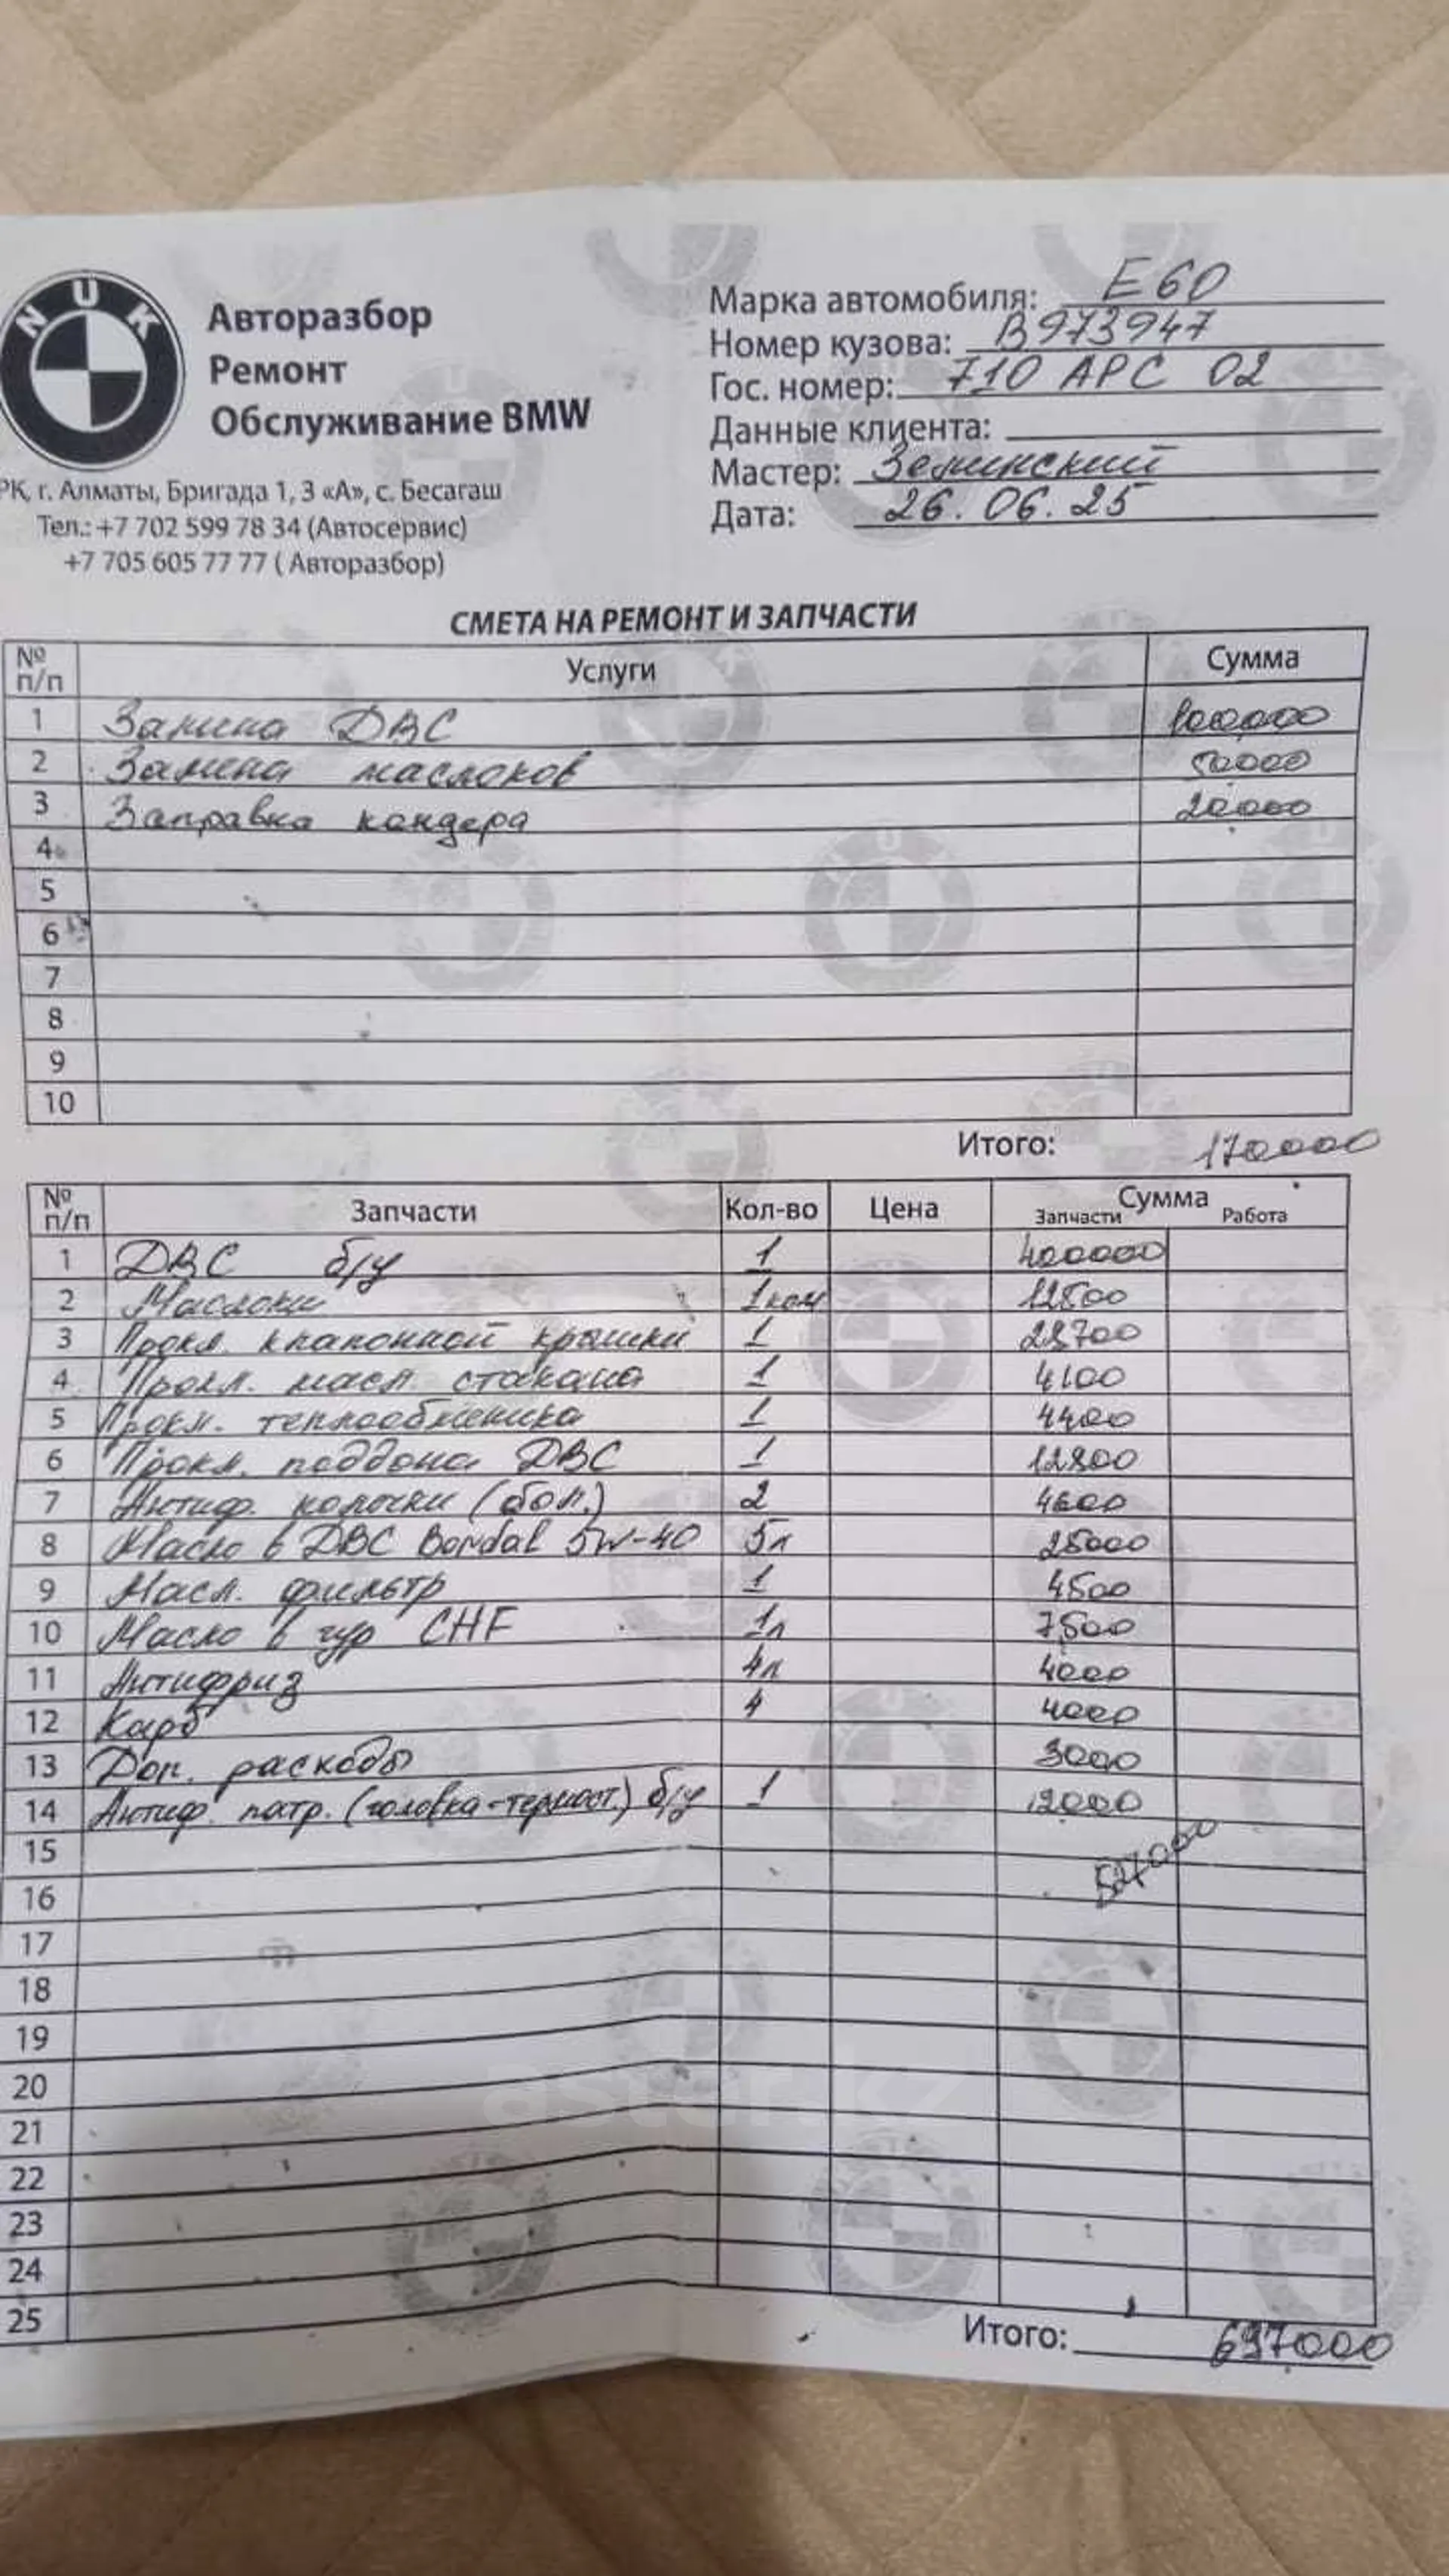 NUK
Авторазбор
Ремонт
Обслуживание BMW
РК, г. Алматы, Бригада 1, 3 «А», с. Бесагаш
Тел.: +7 702 599 78 34 (Автосервис)
+7 705 605 77 77 ( Авторазбор)
Марка автомобиля: E60
Номер кузова: B973947
Гос. номер: 710 APC 02
Данные клиента:
Мастер: Земинский
Дата: 26.06.25
СМЕТА НА РЕМОНТ И ЗАПЧАСТИ
№ п/п Услуги Сумма
1 Замина ДВС 100000
2 Замена маслоков 50000
3 Заправка кондера 20000
4
5
6
7
8
9
10
Итого: 170000
№ п/п Запчасти Кол-во Цена Сумма Запчасти Работа
1 ДВС б/у 1 400000
2 Маслоки 1ком 12500
3 Прокл. клапонной крышки 1 28700
4 Прокл. масл. стакана 1 4100
5 Прокл. теплообменика 1 4400
6 Прокл. поддона ДВС 1 12800
7 Антиф. колочки (бол.) 2 4600
8 Масло в ДВС Bardal 5W-40 5л 25000
9 Масл. фильтр 1 4500
10 Масло в гур CHF 1л 7500
11 Антифриз 4л 4000
12 Карб 4 4000
13 Доп. расходы 3000
14 Антиф. патр. (головка-термост.) б/у 1 12000
15
527000
16
17
18
19
20
21
22
23
24
25
Итого: 697000
aster.kz